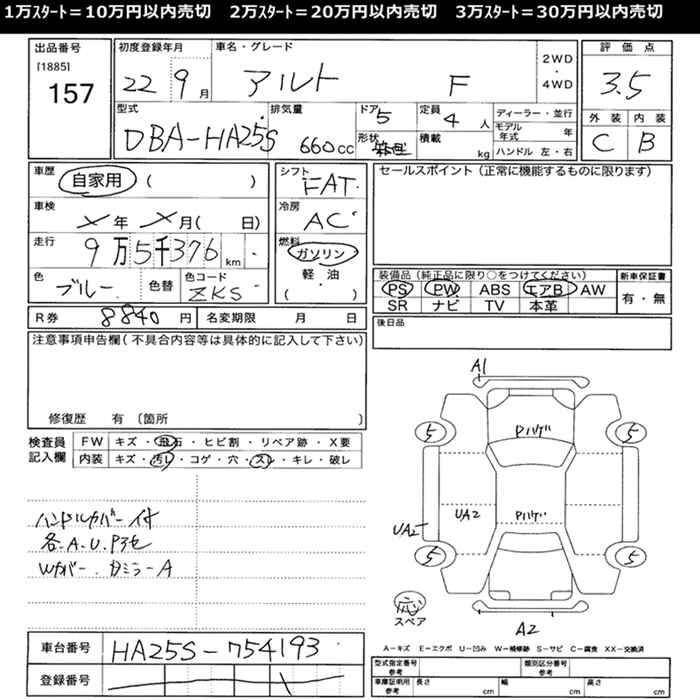 1万ｽﾀｰﾄ＝10万円以内売切　2万ｽﾀｰﾄ＝20万円以内売切　3万ｽﾀｰﾄ＝30万円以内売切
出品番号
[1885]
157
初度登録年月
22 9月
車名・グレード
アルト F
2WD
・
4WD
評価点
3.5
外装 内装
C B
型式
DBA-HA25S
排気量
660cc
ドア
5
形状
定員
4人
積載
kg
ディーラー・並行
モデル年式 年
ハンドル 左・右
車歴
自家用 ( )
車検
メ年 メ月( 日)
走行
9万5千376km
色
ブルー
色替
色コード
ZKS
シフト
FAT
冷房
AC
燃料
ガソリン
軽・油
( )
セールスポイント（正常に機能するものに限ります）
装備品（純正品に限り○をつけてください）
PS PW ABS エアB AW
SR ナビ TV 本革
新車保証書
有・無
R券 8840円
名変期限 月 日
後日品
注意事項申告欄(不具合内容等は具体的に記入して下さい)
修復歴 有 〔箇所 〕
検査員
記入欄
FW キズ・飛石・ヒビ割・リペア跡・X要
内装 キズ・汚れ・コゲ・穴・スレ・キレ・破レ
ハンドルカバー付
各.A.U.Pヨセ
Wカバー.
A1
5
5
Pハゲ
UA2
UA2
Pハゲ
5
5
応
スペア
A2
A－キズ E－エクボ U－凹み W－補修跡 S－サビ C－腐食 XX－交換済
車台番号
HA25S-754193
登録番号
型式指定番号
参考
類別区分番号
参考
車庫証明用
参考
長さ cm
幅 cm
高さ cm